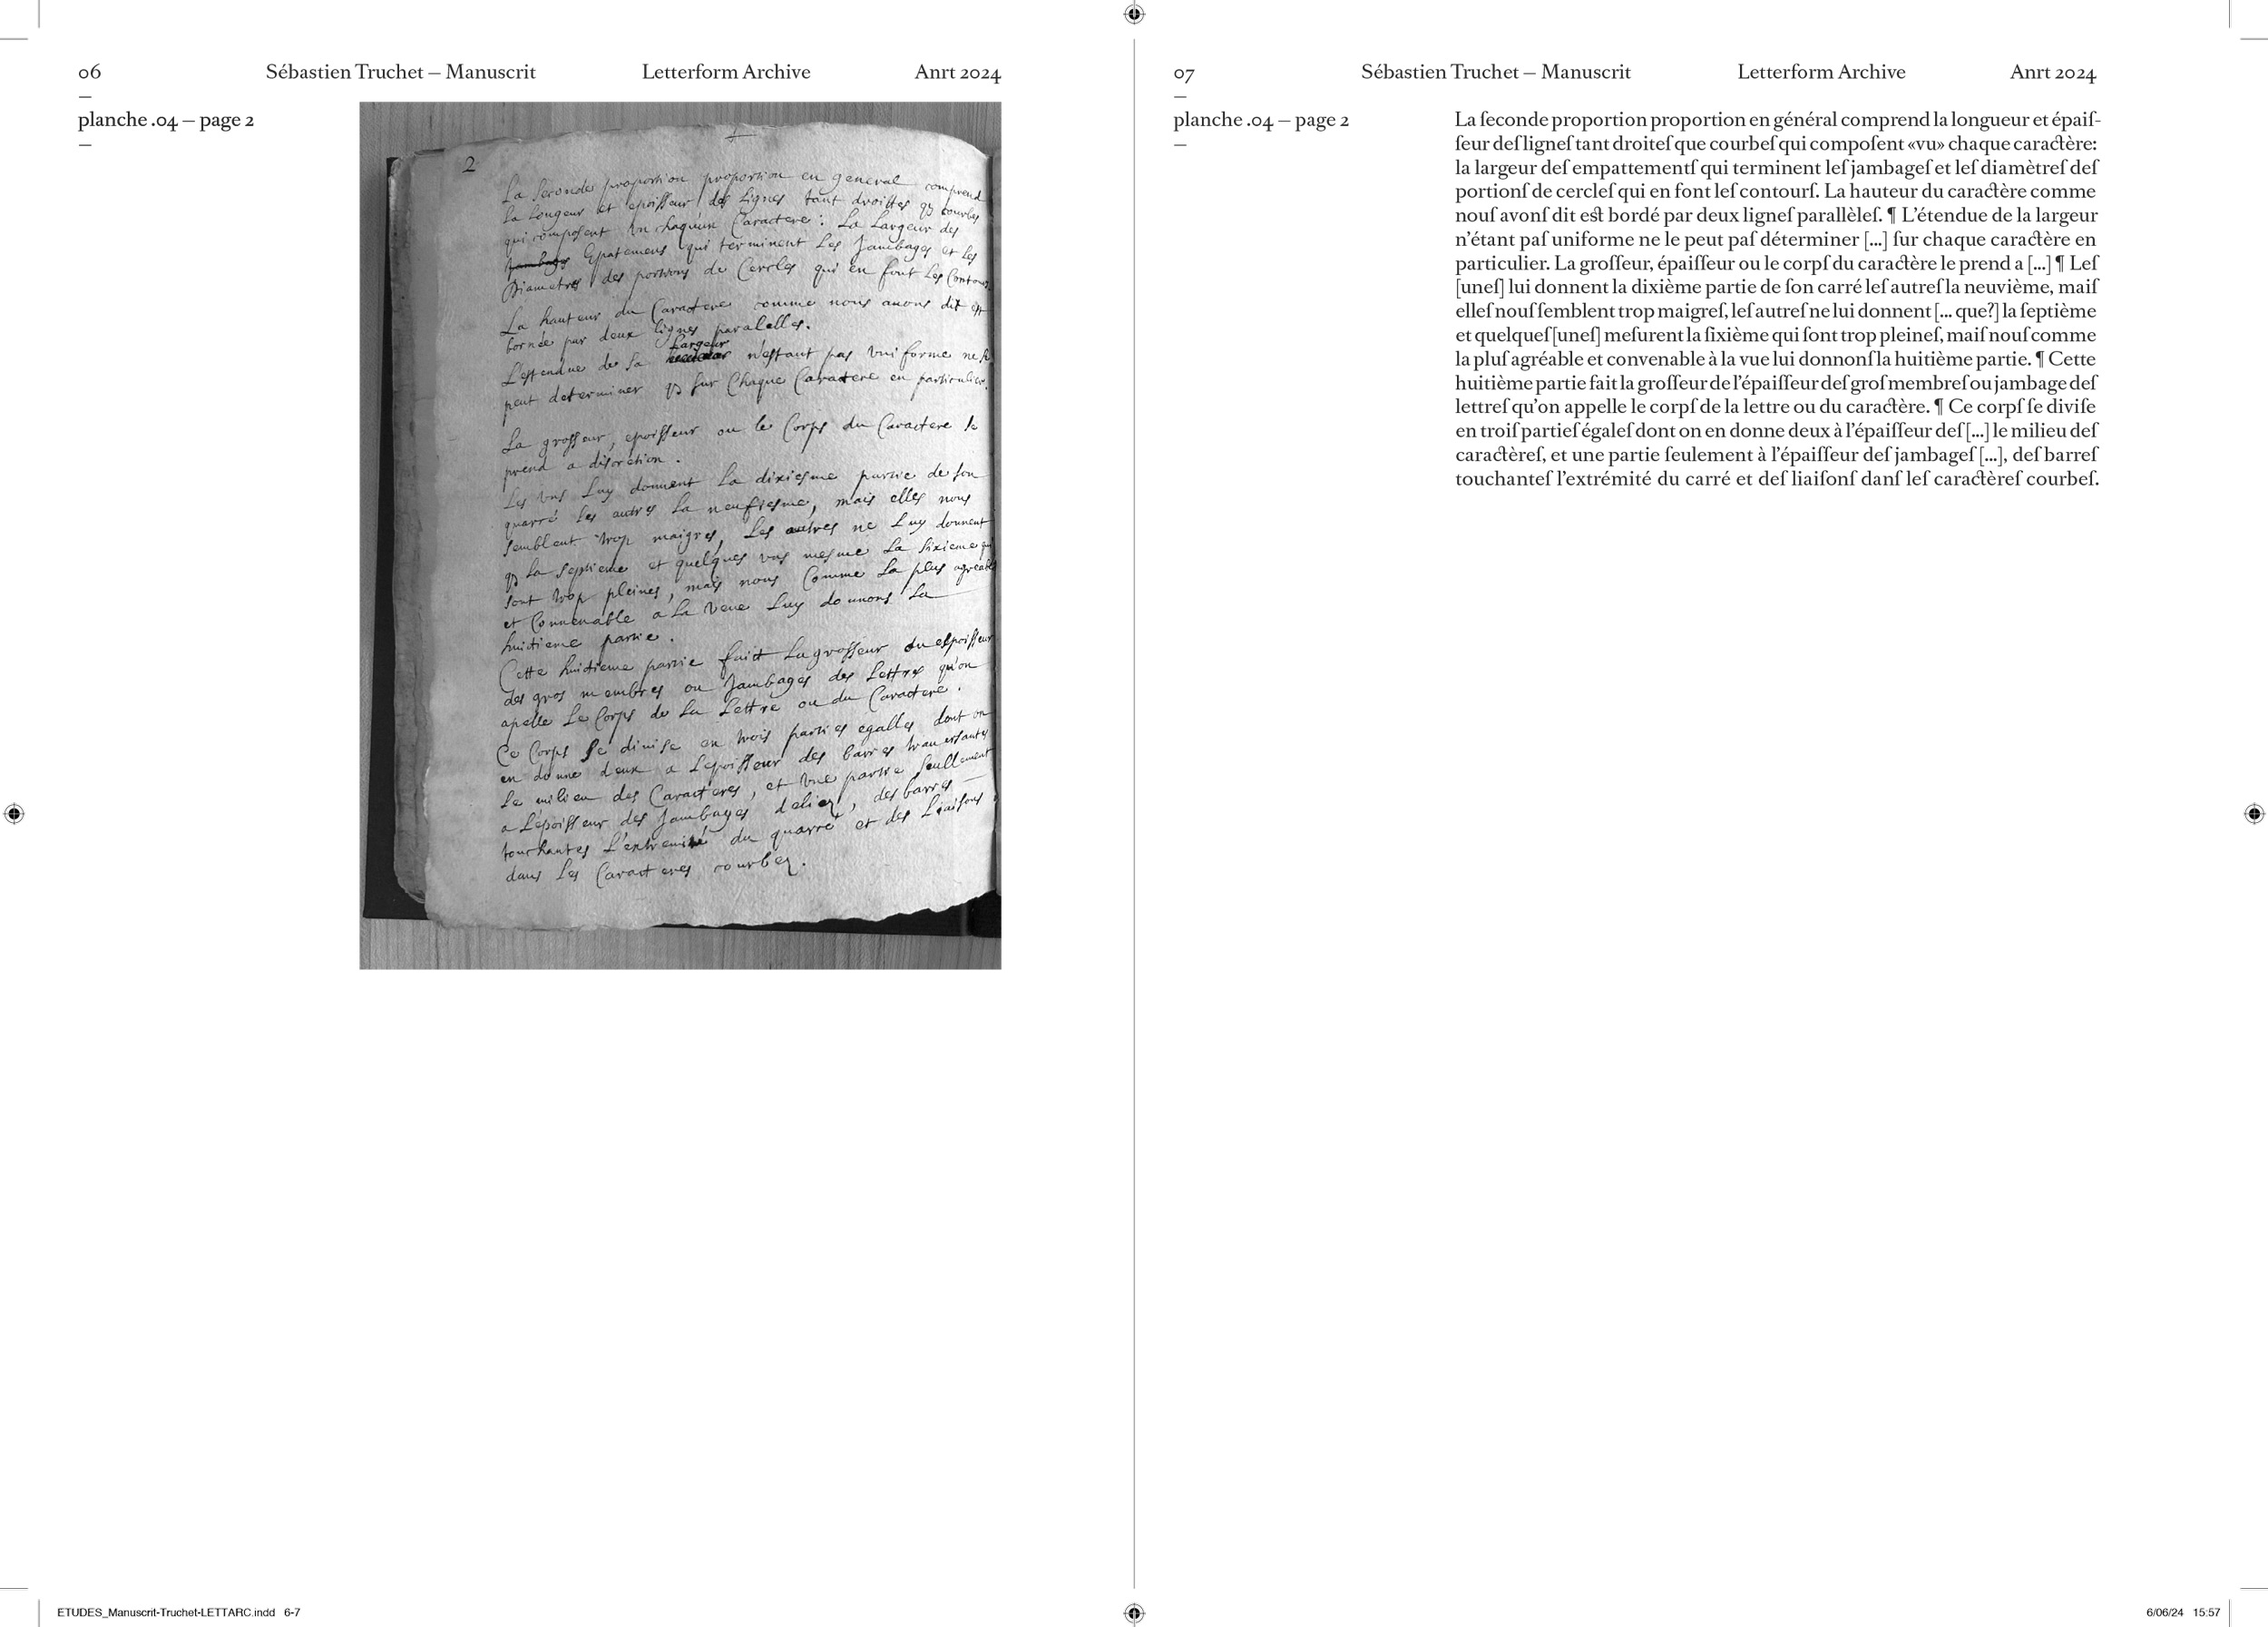 06 Sébastien Truchet – Manuscrit Letterform Archive Anrt 2024
—
planche .04 – page 2
—
2
La seconde proportion proportion en general comprend
La longeur et epoisseur des Lignes tant droittes q3 courbes
qui composent Un chaqu'un Caractere : La Largeur des
Jambages Epatemens qui terminent Les Jambages et Les
Diametres des portions de Cercles qui en font Les Contours.
La hauteur du Caractere comme nous auons dit est
bornée par deux lignes paralelles.
Largeur
L'estendue de sa n'estant pas Vniforme ne se
peut determiner q3 sur Chaque Caractere en particulier.
La grosseur, epoisseur ou le Corps du Caractere se
prend a discretion .
Les Vns Luy donnent La dixiesme partie de son
quarré Les autres La neufiesme, mais elles nous
semblent trop maigres, Les autres ne Luy donnent
q3 La septieme et quelques vns mesme La sixieme qui
sont trop pleines, mais nous Comme La plus agreable
et Conuenable a La Veue Luy donnons La
huitieme partie .
Cette huitieme partie fait La grosseur ou espoisseur
des gros membres ou Jambages des Lettres qu'on
apelle Le Corps de La Lettre ou du Caractere .
Ce Corps se diuise en trois parties egalles dont on
en donne deux a L'epoisseur des barres trauersantes
Le milieu des Caracteres, et vne partie seullement
a L'epoisseur des Jambages deliez, des barres
touchantes L'extremité du quarré et des Liaisons
dans Les Caracteres courbez.
07 Sébastien Truchet – Manuscrit Letterform Archive Anrt 2024
—
planche .04 – page 2
—
La ſeconde proportion proportion en général comprend la longueur et épaiſ-
ſeur deſ ligneſ tant droiteſ que courbeſ qui compoſent «vu» chaque caractère:
la largeur deſ empattementſ qui terminent leſ jambageſ et leſ diamètreſ deſ
portionſ de cercleſ qui en font leſ contourſ. La hauteur du caractère comme
nouſ avonſ dit est bordé par deux ligneſ parallèleſ. ¶ L’étendue de la largeur
n’étant paſ uniforme ne le peut paſ déterminer [...] ſur chaque caractère en
particulier. La groſſeur, épaiſſeur ou le corpſ du caractère le prend a [...] ¶ Leſ
[uneſ] lui donnent la dixième partie de ſon carré leſ autreſ la neuvième, maiſ
elleſ nouſ ſemblent trop maigreſ, leſ autreſ ne lui donnent [... que?] la ſeptième
et quelqueſ [uneſ] meſurent la ſixième qui ſont trop pleineſ, maiſ nouſ comme
la pluſ agréable et convenable à la vue lui donnonſ la huitième partie. ¶ Cette
huitième partie fait la groſſeur de l’épaiſſeur deſ groſ membreſ ou jambage deſ
lettreſ qu’on appelle le corpſ de la lettre ou du caractère. ¶ Ce corpſ ſe diviſe
en troiſ partieſ égaleſ dont on en donne deux à l’épaiſſeur deſ [...] le milieu deſ
caractèreſ, et une partie ſeulement à l’épaiſſeur deſ jambageſ [...], deſ barreſ
touchanteſ l’extrémité du carré et deſ liaiſonſ danſ leſ caractèreſ courbeſ.
ETUDES_Manuscrit-Truchet-LETTARC.indd 6-7 6/06/24 15:57